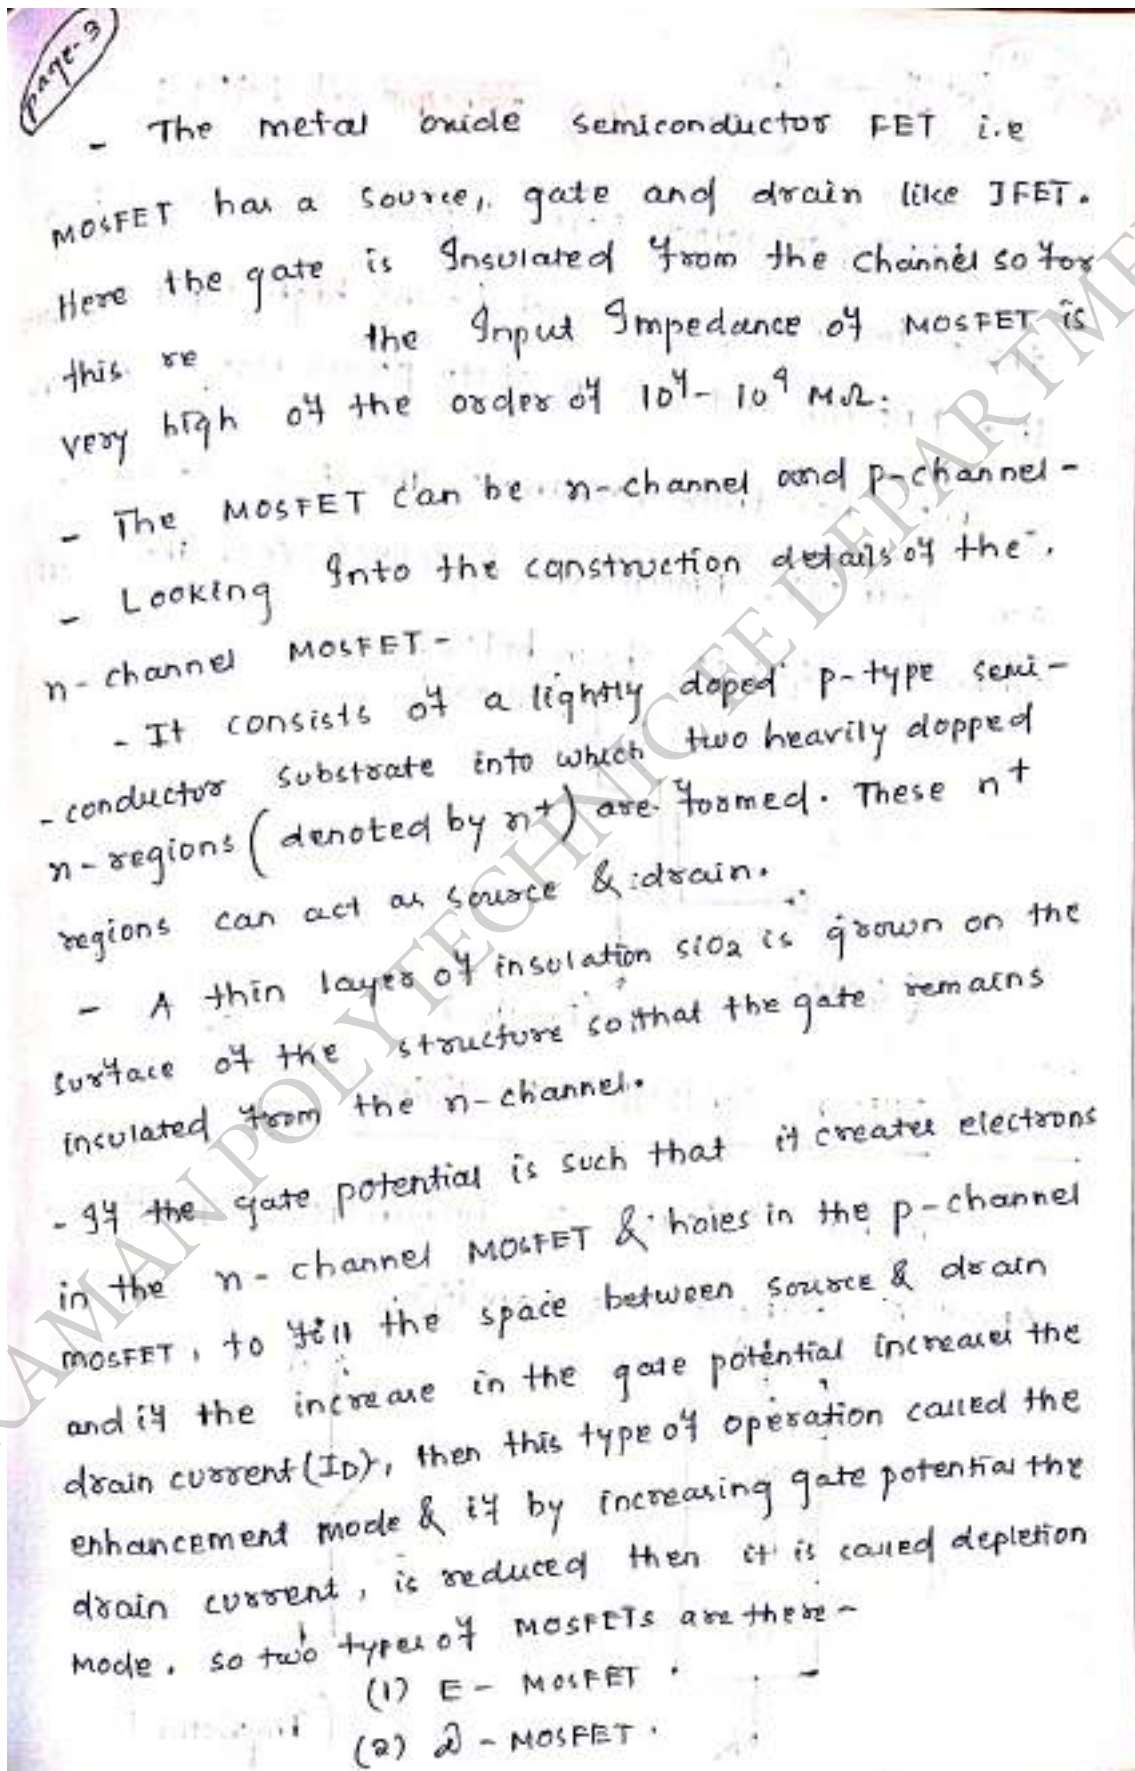 page-3
- The metal oxide semiconductor FET i.e
MOSFET has a source, gate and drain like JFET.
Here the gate is Insulated from the channel so for
this re the Input Impedance of MOSFET is
very high of the order of 10⁴- 10⁹ MΩ.
- The MOSFET can be n-channel and p-channel -
- Looking Into the construction details of the
n-channel MOSFET -
- It consists of a lightly doped p-type semi-
- conductor substrate into which two heavily dopped
n-regions (denoted by n⁺) are formed. These n⁺
regions can act as source & drain.
- A thin layer of insulation SiO₂ is grown on the
surface of the structure so that the gate remains
insulated from the n-channel.
- If the gate potential is such that it creates electrons
in the n-channel MOSFET & holes in the p-channel
MOSFET, to fill the space between source & drain
and if the increase in the gate potential increases the
drain current (I_D), then this type of operation called the
enhancement mode & if by increasing gate potential the
drain current, is reduced then it is called depletion
mode. so two types of MOSFETs are there -
(1) E - MOSFET
(2) D - MOSFET.
RAMAN POLYTECHNIC EE DEPARTME